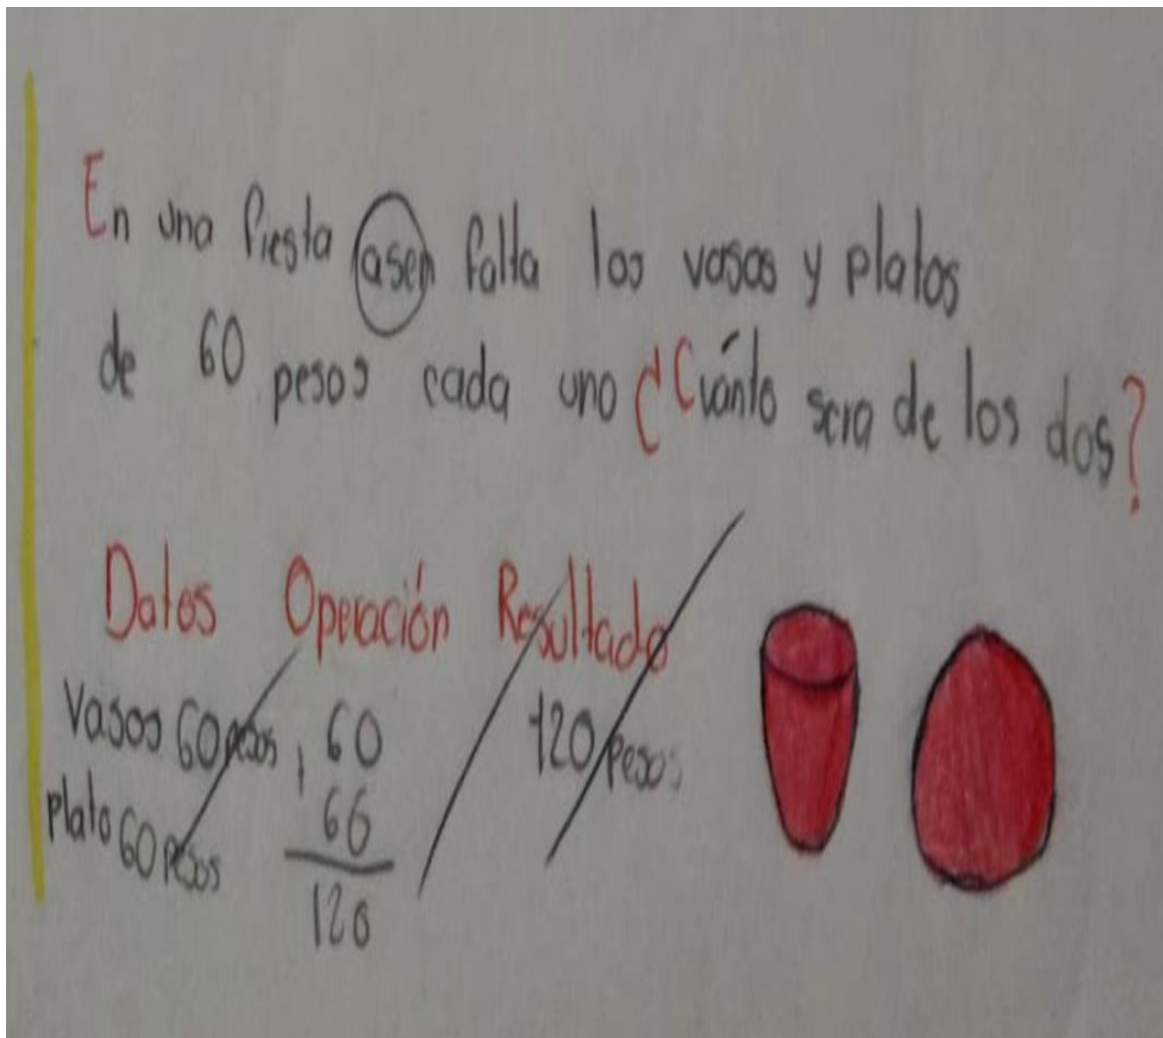 En una fiesta asen falta los vasos y platos
de 60 pesos cada uno ¿Cuánto sera de los dos?
Datos Operación Resultado
Vasos 60 pesos, 60 120 pesos
plato 60 pesos 60
120